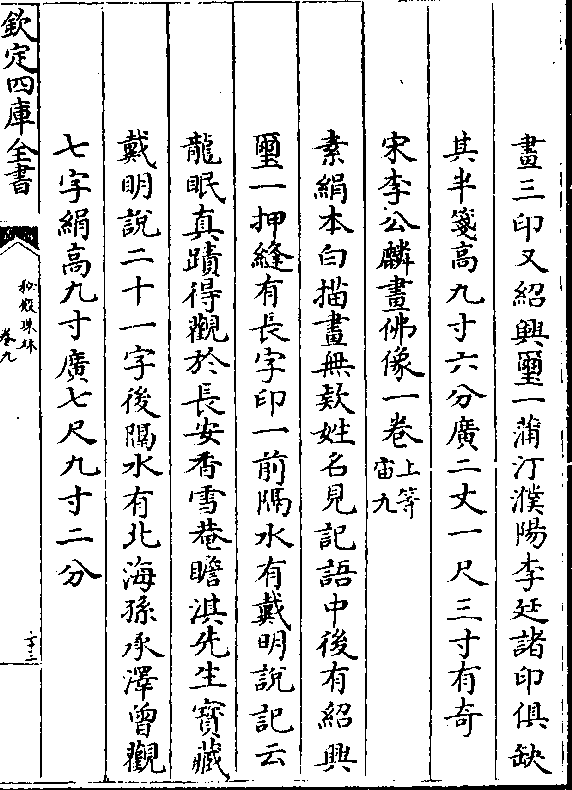 畫三印又紹興璽一蒲汀濮陽李廷諸印俱缺
其半箋高九寸六分廣二丈一尺三寸有奇
宋李公麟畫佛像一卷上等宙九
素絹本白描畫無欵姓名見記語中後有紹興
璽一押縫有長字印一前隔水有戴明說記云
龍眠真蹟得觀於長安香雪菴瞻淇先生寳藏
戴明說二十一字後隔水有北海孫承澤曾觀
七字絹高九寸廣七尺九寸二分
欽定四庫全書
秘殿珠林
卷九